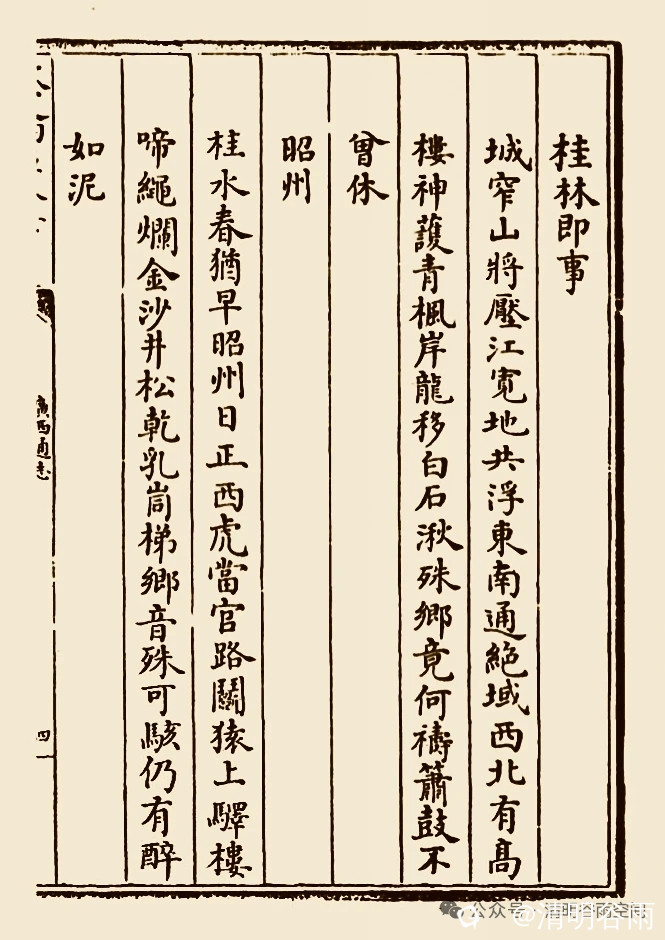 桂林即事
城窄山將壓江寬地共浮東南通絕域西北有高
樓神護青楓岸龍移白石湫殊鄉竟何禱簫鼓不
曾休
昭州
桂水春猶早昭州日正西虎當官路鬭猿上驛樓
啼繩爛金沙井松乾乳峝梯鄉音殊可駭仍有醉
如泥
廣西通志
四
公众号·清明谷雨空间
@清明谷雨